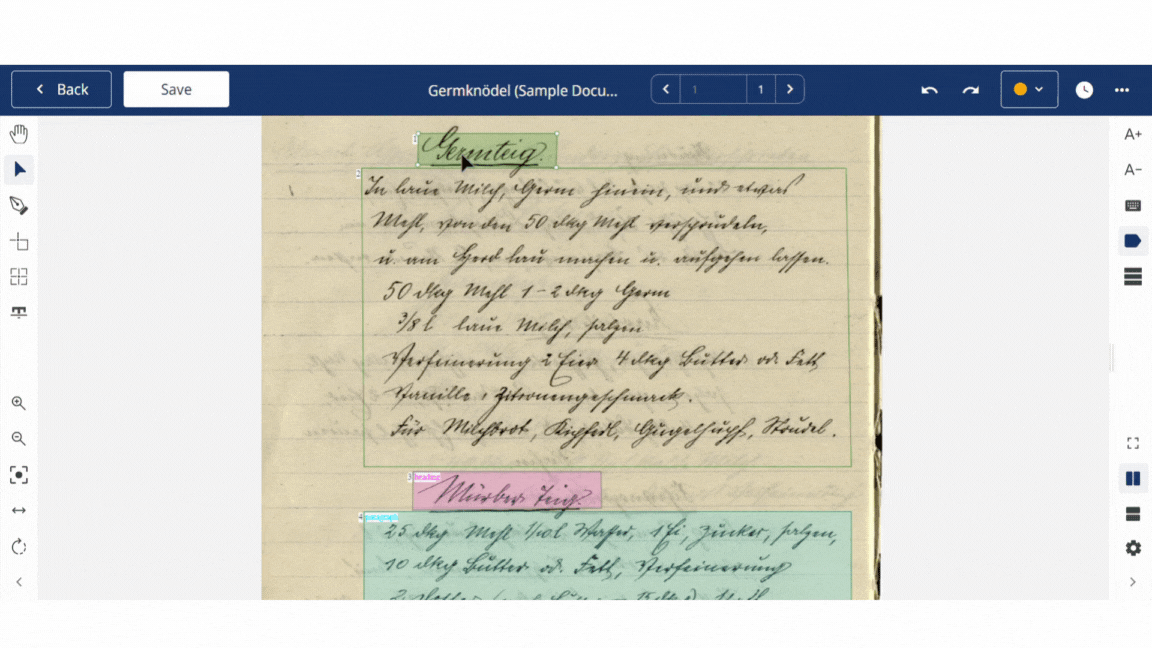 Back
Save
Germknödel (Sample Docu...
1
1
A+
A-
1
Germteig.
2
In laue Milch, Germ hinein, und etwas
Mehl, von den 50 dkg Mehl versprudeln,
u. am Herd lau machen u. aufgehen lassen.
50 dkg Mehl 1-2 dkg Germ
3/8 l laue Milch, salzen
Verfeinerung 2 Eier 4 dkg Butter od. Fett
Vanille, Zitronengeschmack.
Für Milchbrot, Kipferl, Gugelhupf, Strudel.
3 heading
Mürber Teig.
4 paragraph
25 dkg Mehl 1/10 l Wasser, 1 Ei, Zucker, salzen,
10 dkg Butter od. Fett, Verfeinerung
2 Dotter